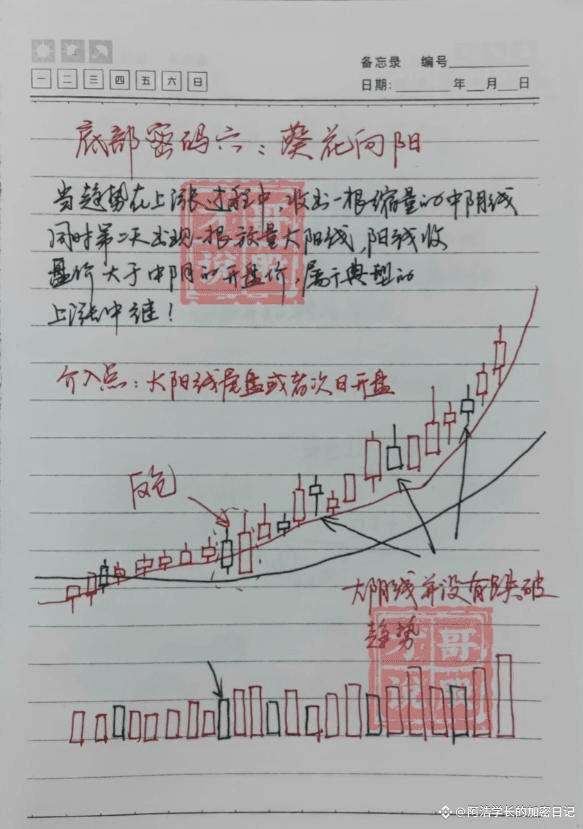 备忘录 编号
一 二 三 四 五 六 日
日期: 年 月 日
底部密码六：葵花向阳
当趋势在上涨过程中，收出一根缩量的中阴线
同时第二天出现一根放量大阳线，阳线收
盘价大于中阴的开盘价，属于典型的
上涨中继！
介入点：大阳线尾盘或者次日开盘
反包
大阴线并没有跌破
趋势
方哥
说股
方哥
说股
@阿浩学长的加密日记